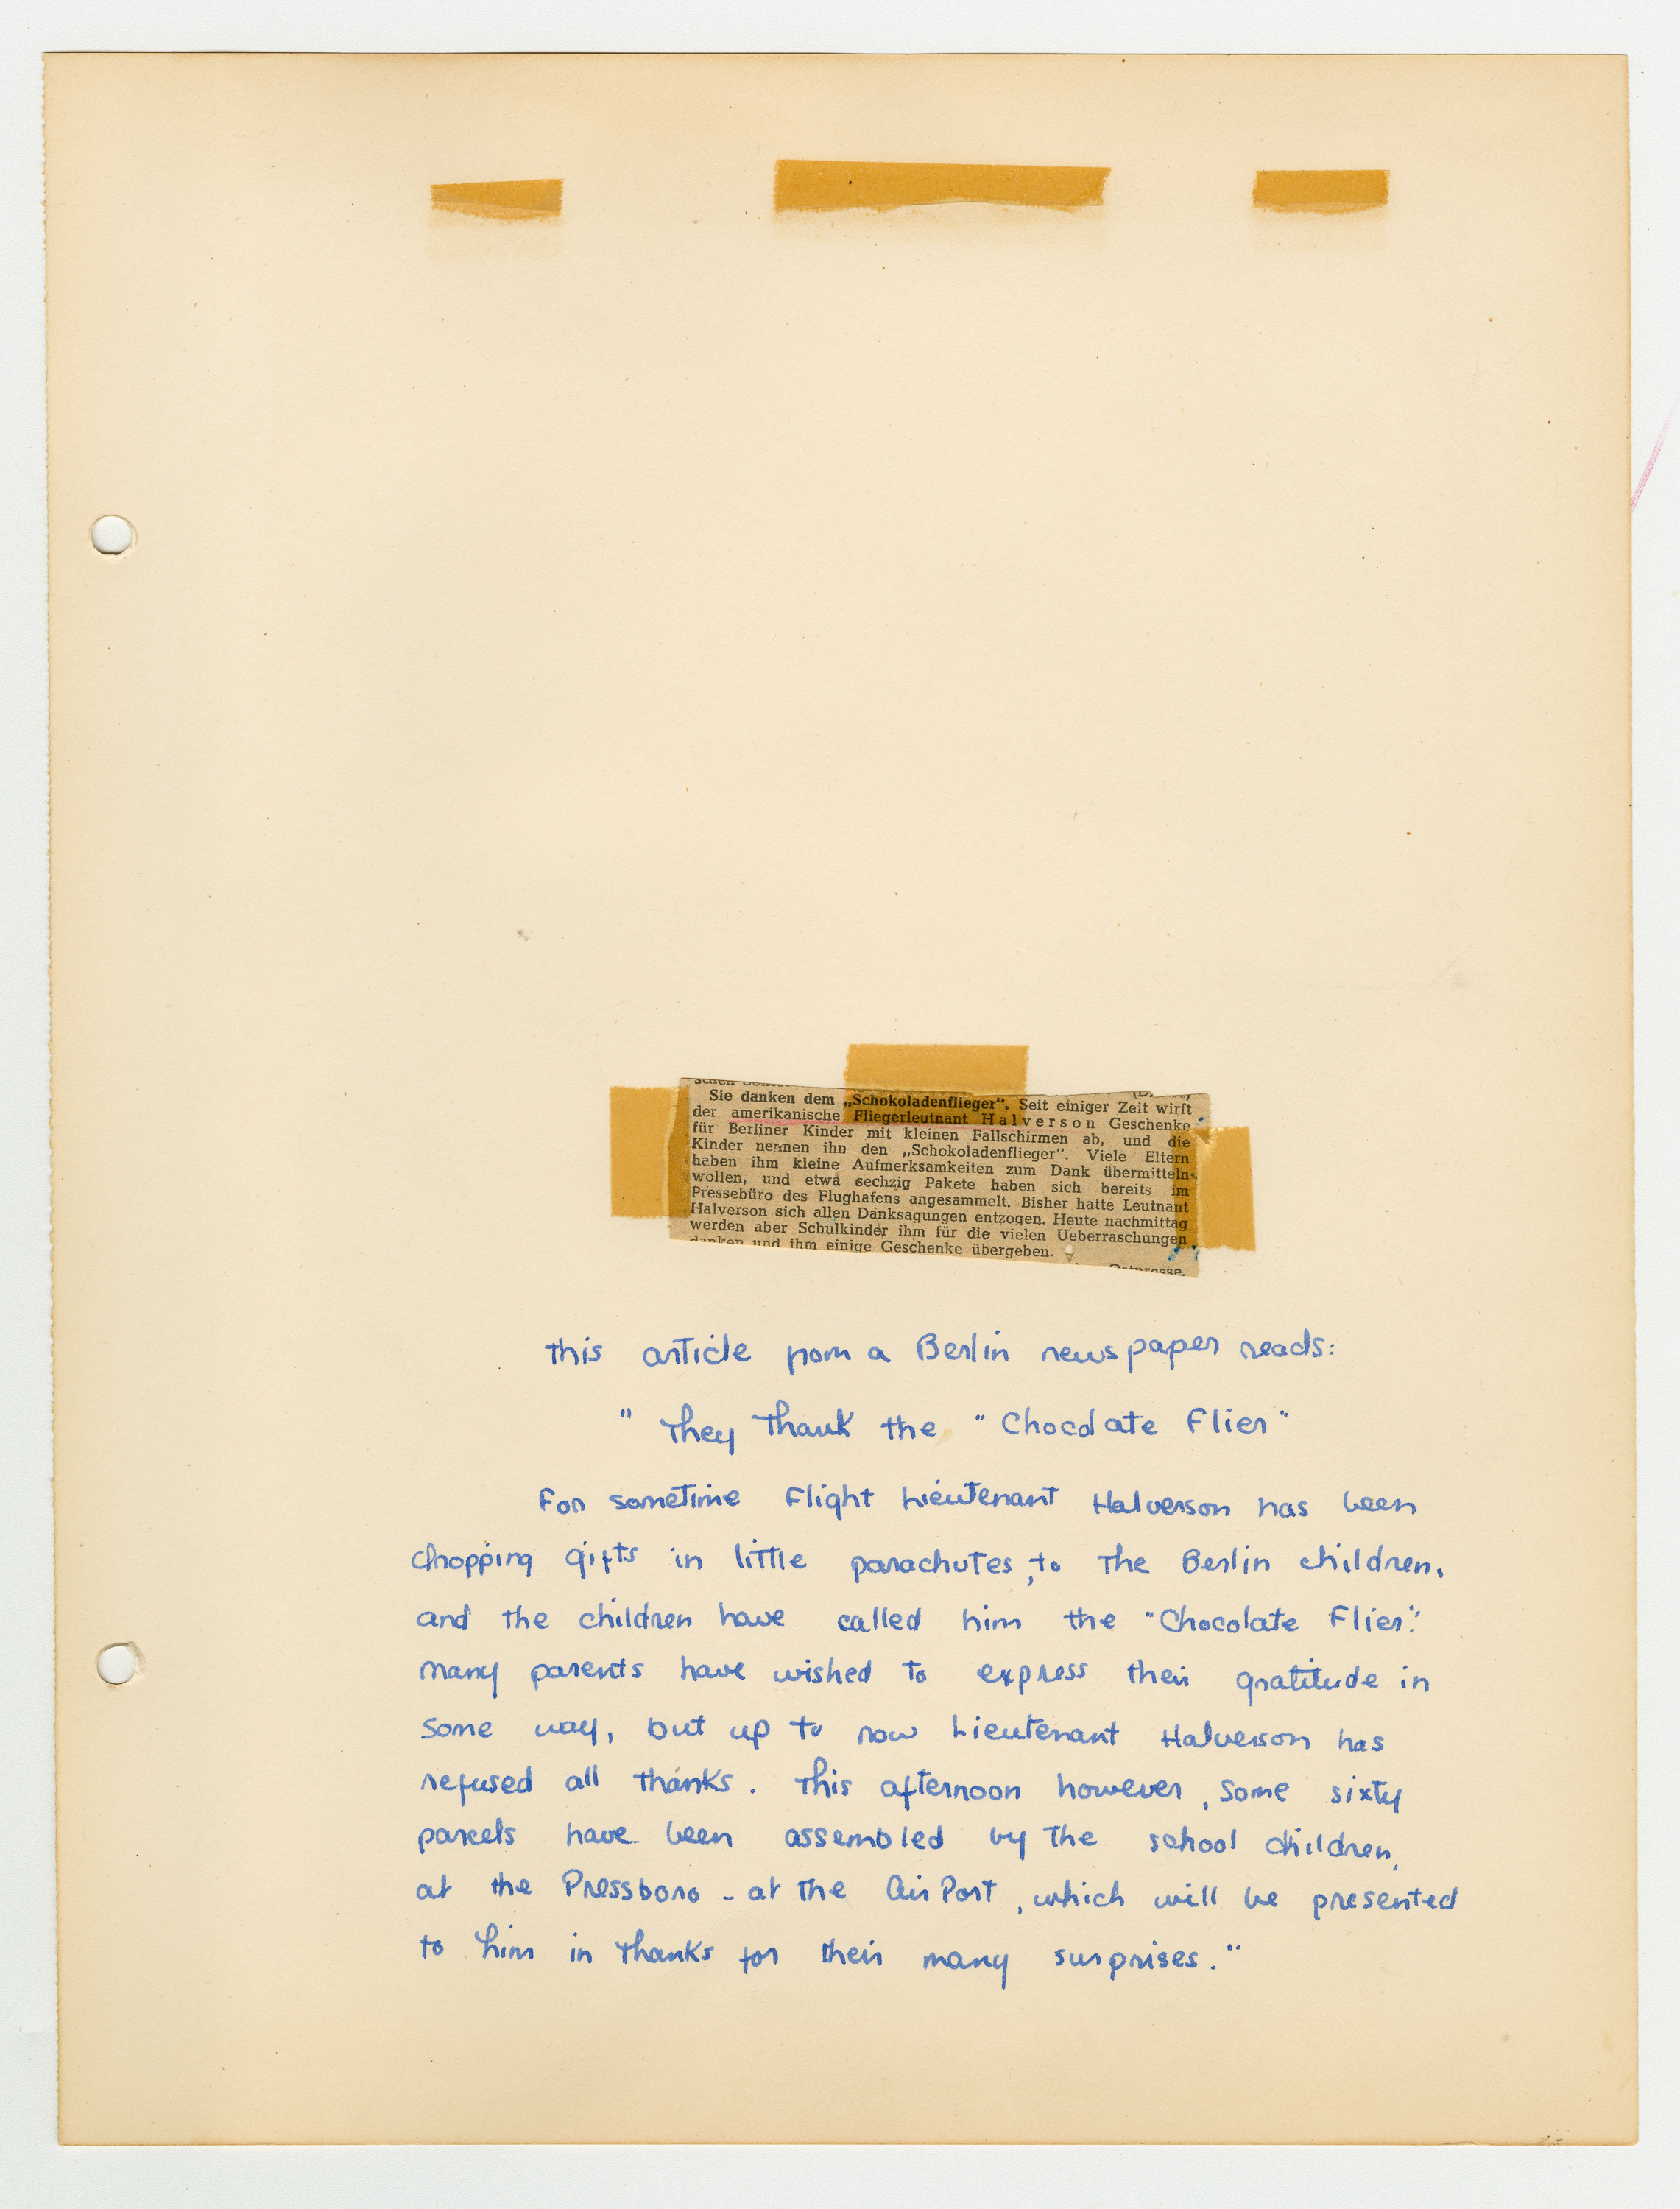 Sie danken dem „Schokoladenflieger“. Seit einiger Zeit wirft
der amerikanische Fliegerleutnant Halverson Geschenke
für Berliner Kinder mit kleinen Fallschirmen ab, und die
Kinder nennen ihn den „Schokoladenflieger“. Viele Eltern
haben ihm kleine Aufmerksamkeiten zum Dank übermitteln
wollen, und etwa sechzig Pakete haben sich bereits im
Pressebüro des Flughafens angesammelt. Bisher hatte Leutnant
Halverson sich allen Danksagungen entzogen. Heute nachmittag
werden aber Schulkinder ihm für die vielen Ueberraschungen
danken und ihm einige Geschenke übergeben.
Ostpresse.
This article from a Berlin newspaper reads:
" They Thank the "Chocolate Flier"
For sometime Flight Lieutenant Halverson has been
dropping gifts in little parachutes, to the Berlin children,
and the children have called him the "Chocolate Flier."
Many parents have wished to express their gratitude in
some way, but up to now Lieutenant Halverson has
refused all thanks. This afternoon however, some sixty
parcels have been assembled by the school children,
at the Pressboro - at the Air Port, which will be presented
to him in thanks for their many surprises."